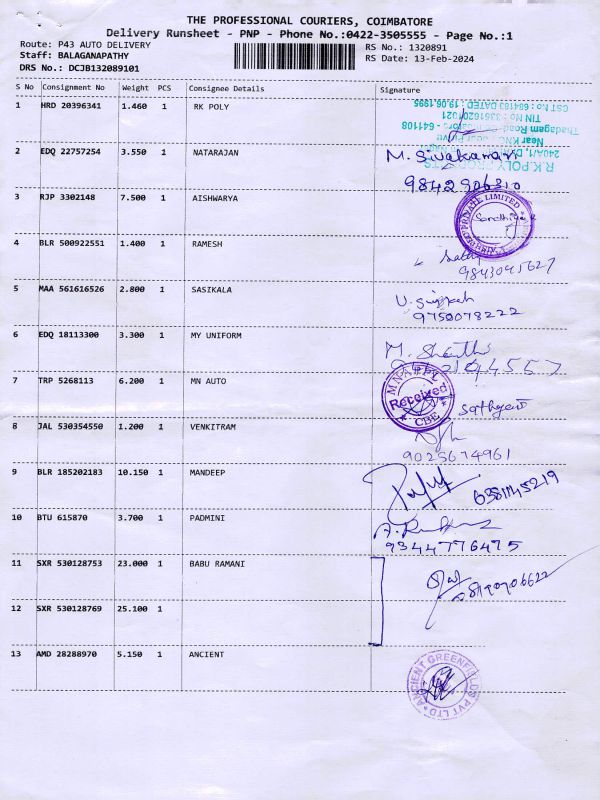 THE PROFESSIONAL COURIERS, COIMBATORE
Delivery Runsheet - PNP - Phone No.:0422-3505555 - Page No.:1
Route: P43 AUTO DELIVERY
RS No.: 1320891
Staff: BALAGANAPATHY
RS Date: 13-Feb-2024
DRS No.: DCJB132089101
S No Consignment No Weight PCS Consignee Details Signature
1 HRD 20396341 1.460 1 RK POLY
CST No : 684183 DATED 19.06.1995
641108
Near KNG
R.K.POLY
2 EDQ 22757254 3.550 1 NATARAJAN M. Sivakamani
9842906310
3 RJP 3302148 7.500 1 AISHWARYA
PRIVATE LIMITED
4 BLR 500922551 1.400 1 RAMESH
9843045627
5 MAA 561616526 2.800 1 SASIKALA
9750078222
6 EDQ 18113300 3.300 1 MY UNIFORM M. Shanthi
7 TRP 5268113 6.200 1 MN AUTO
Received
CBE
8 JAL 530354550 1.200 1 VENKITRAM
9025674961
9 BLR 185202183 10.150 1 MANDEEP
6381145219
10 BTU 615870 3.700 1 PADMINI
9344776475
11 SXR 530128753 23.000 1 BABU RAMANI
12 SXR 530128769 25.100 1
13 AMD 28288970 5.150 1 ANCIENT
ANCIENT GREENFIELDS PVT LTD